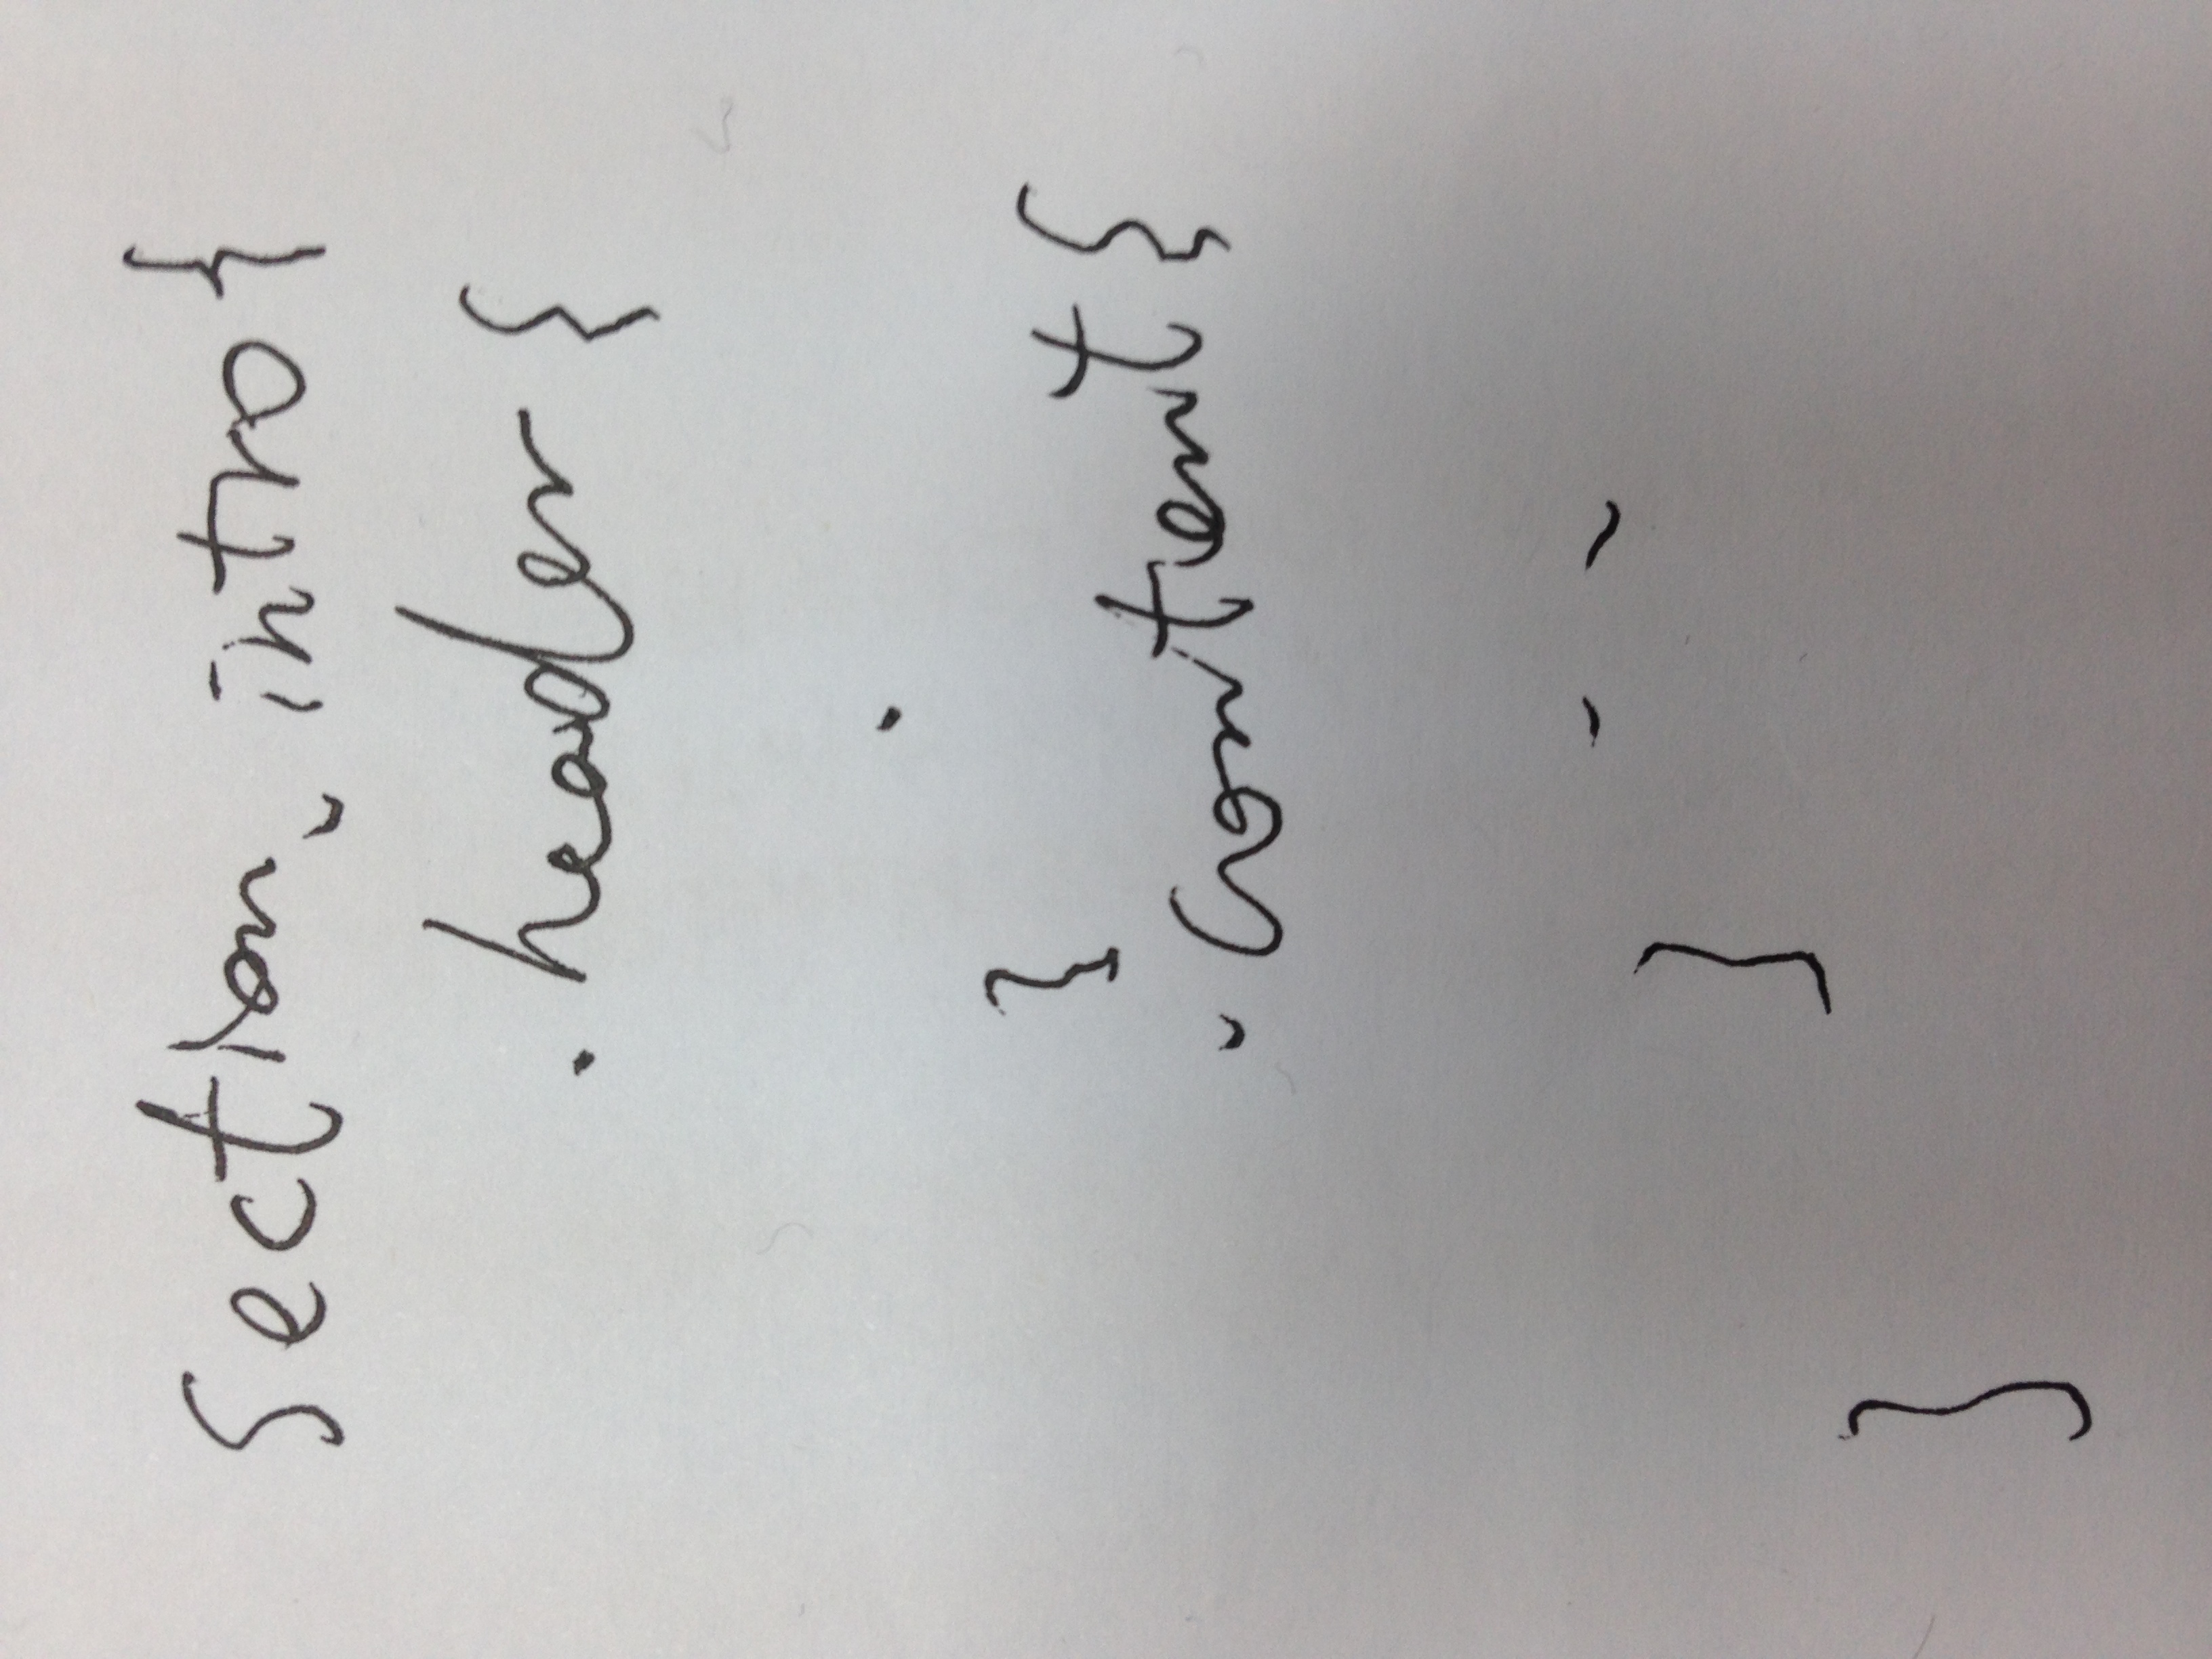 section .intro {
.header {
.
}
.content {
- -
}
}